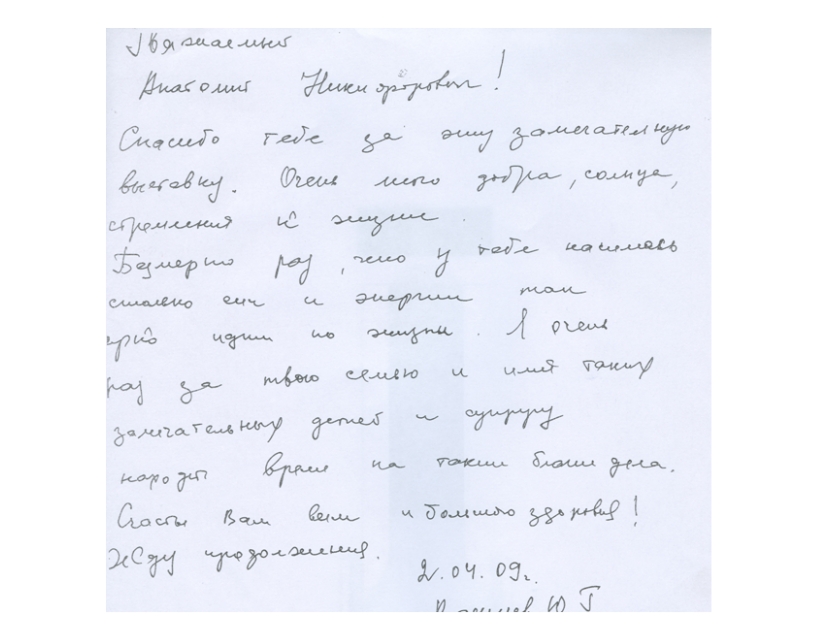 Уважаемый
Анатолий Никифорович!
Спасибо тебе за эту замечательную
выставку. Очень много добра, солнца,
стремления к жизни.
Безмерно рад, что у тебе нашлось
столько сил и энергии так
ярко идти по жизни. Я очень
рад за твою семью и имея таких
замечательных детей и супругу
находить время на такие благие дела.
Счастья Вам всем и большого здоровья!
Жду продолжения.
2.04.09г.
Ю Г